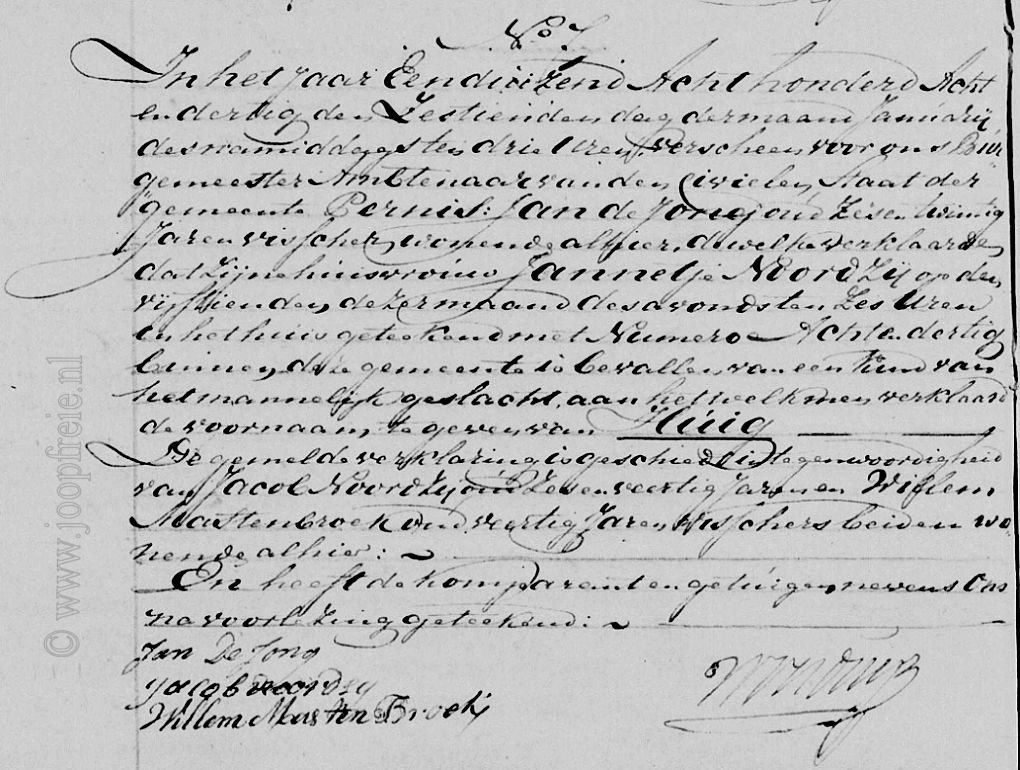 No 7
In het Jaar Eenduizend Acht honderd Acht
en dertig den Zestienden dag der maand Januarij
des namiddags ten drie Uren, verscheen voor ons Bur
gemeester Ambtenaar van den Civielen Staat der
gemeente Pernis: Jan de Jong, oud Zes en twintig
Jaren visscher, wonende alhier, dewelke verklaarde
dat Zijne huisvrouw Jannetje Noordzij op den
vijftienden dezer maand des avonds ten Zes Uren
in het huis geteekend met Numero Acht en dertig
binnen deze gemeente is bevallen van een Kind van
het mannelijk geslacht, aan hetwelk men verklaard
de voornaam te geven van Huig
De gemelde verklaring is geschied in tegenwoordigheid
van Jacob Noordzij oud Zes en veertig Jaren en Willem
Mastenbroek oud veertig Jaren, visschers beiden wo
nende alhier:
En heeft de Komparant en getuigen nevens Ons
na voorlezing geteekend:
Jan De Jong
Jacob noordzy
Willem Mas ten Broek
© www.joopfreie.nl